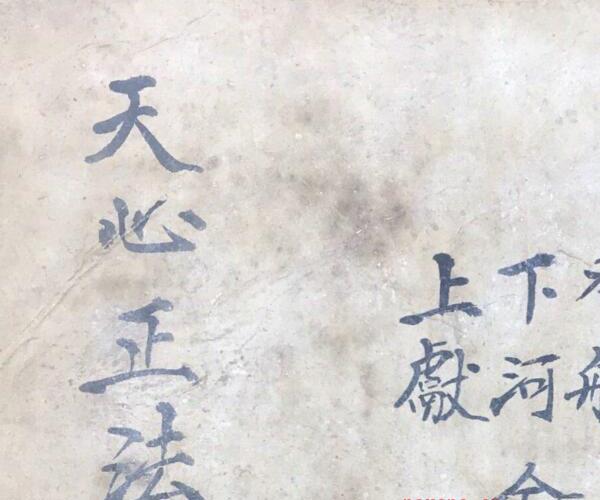 下河
上獻
天心正法